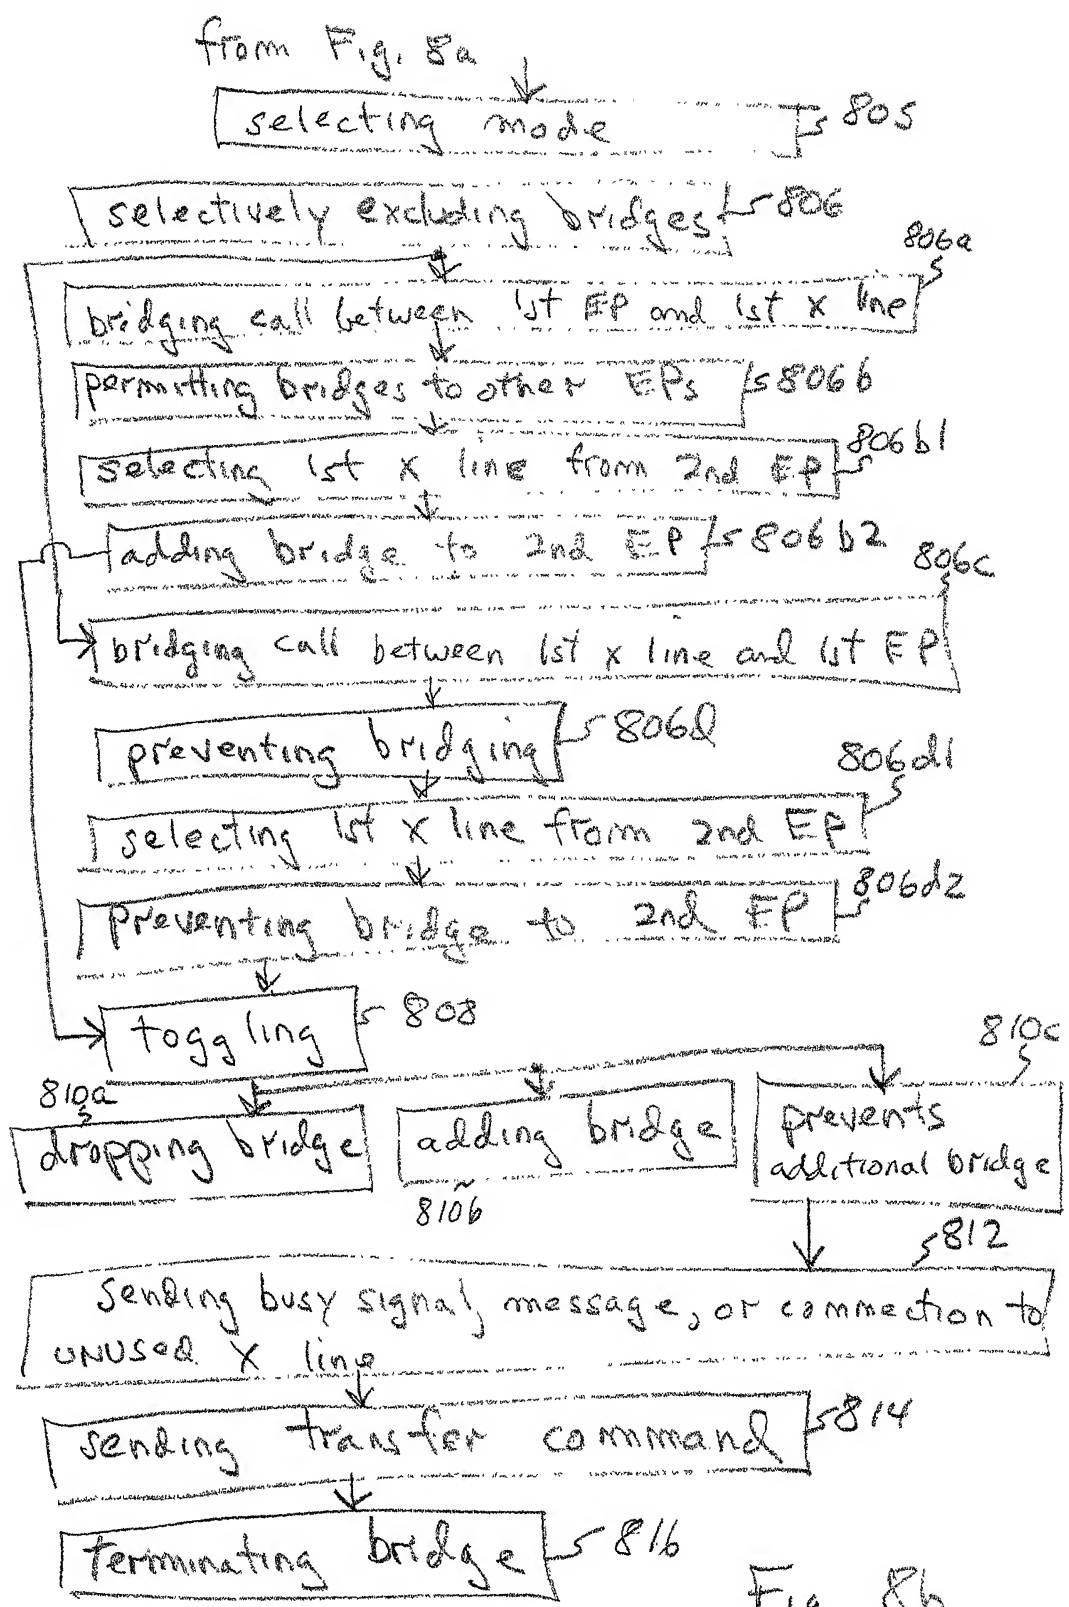 from Fig. 8a
selecting mode
805
selectively excluding bridges
806
806a
bridging call between 1st EP and 1st x line
permitting bridges to other EPs
806b
806b1
selecting 1st x line from 2nd EP
adding bridge to 2nd EP
806b2
806c
bridging call between 1st x line and 1st EP
preventing bridging
806d
806d1
selecting 1st x line from 2nd EP
806d2
preventing bridge to 2nd EP
toggling
808
810a
810c
dropping bridge
adding bridge
prevents
additional bridge
810b
812
sending busy signal, message, or connection to
unused x line
sending transfer command
814
terminating bridge
816
Fig. 8b